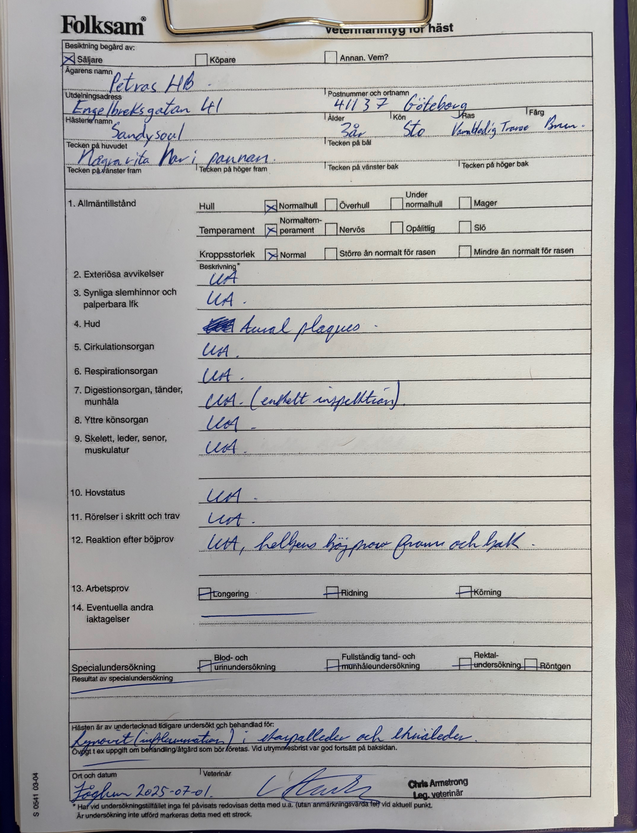 Folksam®
Veterinärintyg för häst
Besiktning begärd av:
Säljare Köpare Annan. Vem?
Ägarens namn
Petras HB
Utdelningsadress Postnummer och ortnamn
Engelbrektsgatan 41 41137 Göteborg
Hästens namn Ålder Kön Ras Färg
Sandysoul 3år Sto Varmblodig Travare Brun.
Tecken på huvudet Tecken på bål
Några vita hår i pannan.
Tecken på vänster fram Tecken på höger fram Tecken på vänster bak Tecken på höger bak
1. Allmäntillstånd Hull Normalhull Överhull Under normalhull Mager
Temperament Normaltem-perament Nervös Opålitlig Slö
Kroppsstorlek Normal Större än normalt för rasen Mindre än normalt för rasen
Beskrivning*
2. Exteriösa avvikelser UA
3. Synliga slemhinnor och
palperbara lfk UA.
4. Hud Aural plaques.
5. Cirkulationsorgan UA.
6. Respirationsorgan UA.
7. Digestionsorgan, tänder,
munhåla UA. (enkelt inspektion)
8. Yttre könsorgan UA.
9. Skelett, leder, senor,
muskulatur UA.
10. Hovstatus UA.
11. Rörelser i skritt och trav UA.
12. Reaktion efter böjprov UA, helbens böjprov fram och bak.
13. Arbetsprov Longering Ridning Körning
14. Eventuella andra
iaktagelser
Specialundersökning Blod- och urinundersökning Fullständig tand- och munhåleundersökning Rektal-undersökning Röntgen
Resultat av specialundersökning
Hästen är av undertecknad tidigare undersökt och behandlad för:
Synovit (inflammation) i karpalleder och knäleder.
Övrigt t ex uppgift om behandling/åtgärd som bör företas. Vid utrymmesbrist var god fortsätt på baksidan.
Ort och datum Veterinär
2025-07-01. Chris Armstrong
Leg. veterinär
* Har vid undersökningstillfället inga fel påvisats redovisas detta med u.a. (utan anmärkningsvärda fel) vid aktuell punkt.
Är undersökning inte utförd markeras detta med ett streck.
S 0541 03-04